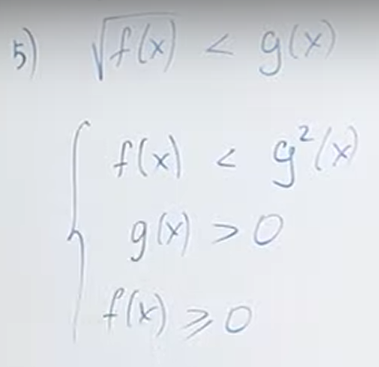 5) √f(x) < g(x)
f(x) < g²(x)
g(x) > 0
f(x) ⩾ 0